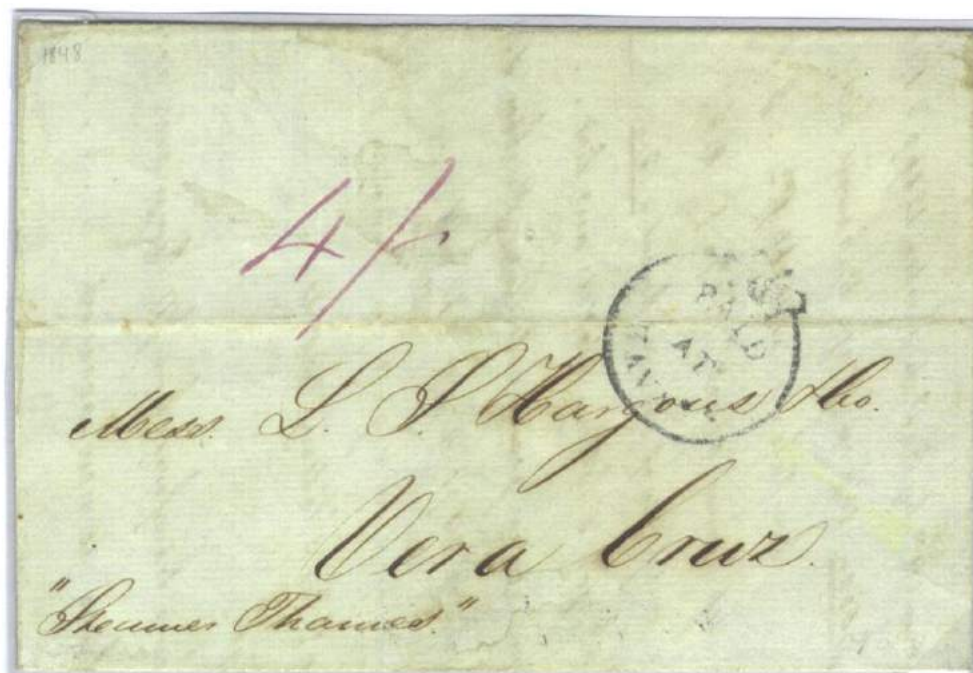 1848
4/-
PAID
AT
Mess. L. S. Hargous & Co.
Vera Cruz.
"Steamer Thames"